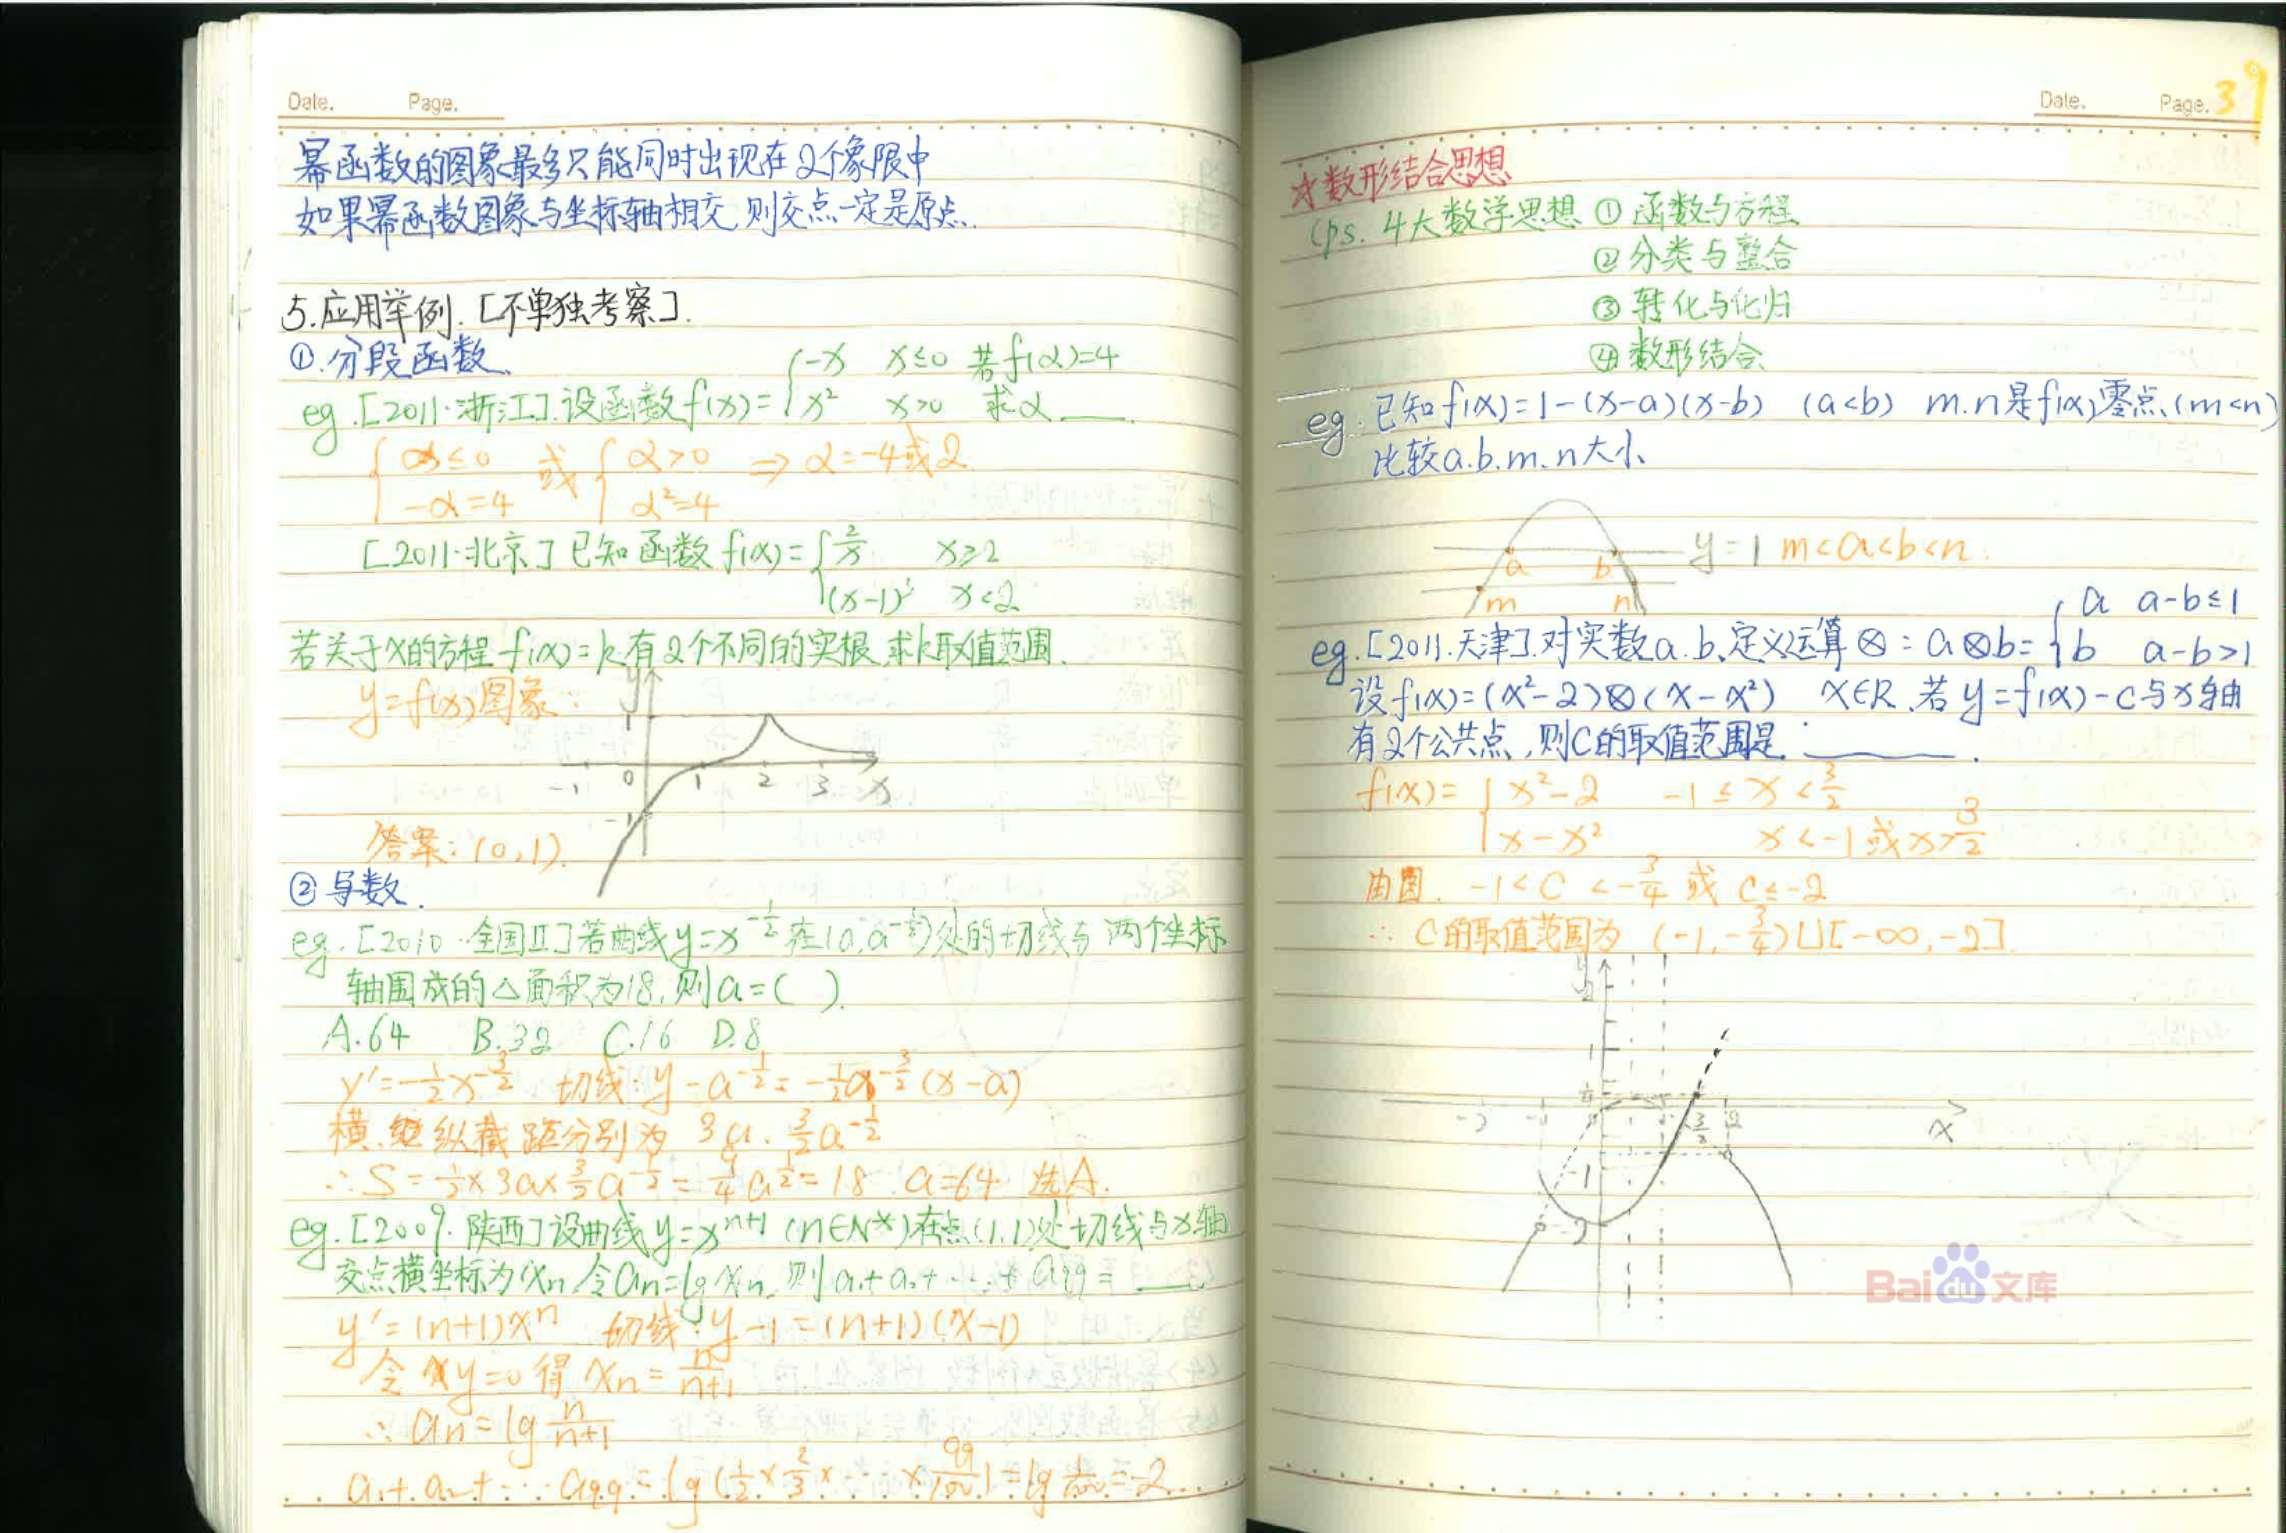 Date. Page.
幂函数的图象最多只能同时出现在2个象限中
如果幂函数图象与坐标轴相交,则交点一定是原点.
5.应用举例.[不单独考察].
①.分段函数.
eg.[2011·浙江].设函数f(x)={-x x≤0 若f(α)=4
x² x>0 求α____.
{α≤0 或 {α>0 ⇒ α=-4或2.
-α=4 α²=4
[2011·北京]已知函数f(x)={2/x x≥2
(x-1)³ x<2
若关于x的方程f(x)=k有2个不同的实根,求k取值范围.
y=f(x)图象:
y
1
-1 0 1 2 3 x
-1
答案:(0,1).
②导数.
eg.[2010·全国II]若曲线y=x^{-1/2}在(a,a^{-1/2})处的切线与两个坐标
轴围成的△面积为18,则a=( ).
A.64 B.32 C.16 D.8
y'=-1/2x^{-3/2} 切线:y-a^{-1/2}=-1/2a^{-3/2}(x-a)
横.纵截距分别为 3a.3/2a^{-1/2}
∴S=1/2×3a×3/2a^{-1/2}=9/4a^{1/2}=18 a=64 选A.
eg.[2009·陕西]设曲线y=x^{n+1}(n∈N*)在点(1,1)处切线与x轴
交点横坐标为xn,令an=lgxn,则a₁+a₂+…+a99=____
y'=(n+1)xⁿ 切线:y-1=(n+1)(x-1)
令y=0得xn=n/(n+1)
∴an=lg n/(n+1)
a₁+a₂+…a99=lg(1/2×2/3×…×99/100)=lg 1/100=-2
Date. Page. 39
☆数形结合思想
(ps.4大数学思想①函数与方程
②分类与整合
③转化与化归
④数形结合.
eg.已知f(x)=1-(x-a)(x-b) (a<b) m.n是f(x)零点.(m<n)
比较a.b.m.n大小.
a b y=1 m<a<b<n.
m n
eg.[2011.天津].对实数a.b.定义运算⊗:a⊗b={a a-b≤1
b a-b>1
设f(x)=(x²-2)⊗(x-x²) x∈R.若y=f(x)-c与x轴
有2个公共点,则C的取值范围是____.
f(x)={x²-2 -1≤x<3/2
x-x² x<-1或x>3/2
由图. -1<C<-3/4 或 C≤-2
∴ C的取值范围为 (-1,-3/4)∪[-∞,-2].
y
2
1
-2 -1 3/2 2 x
-1
-2
Bai du 文库